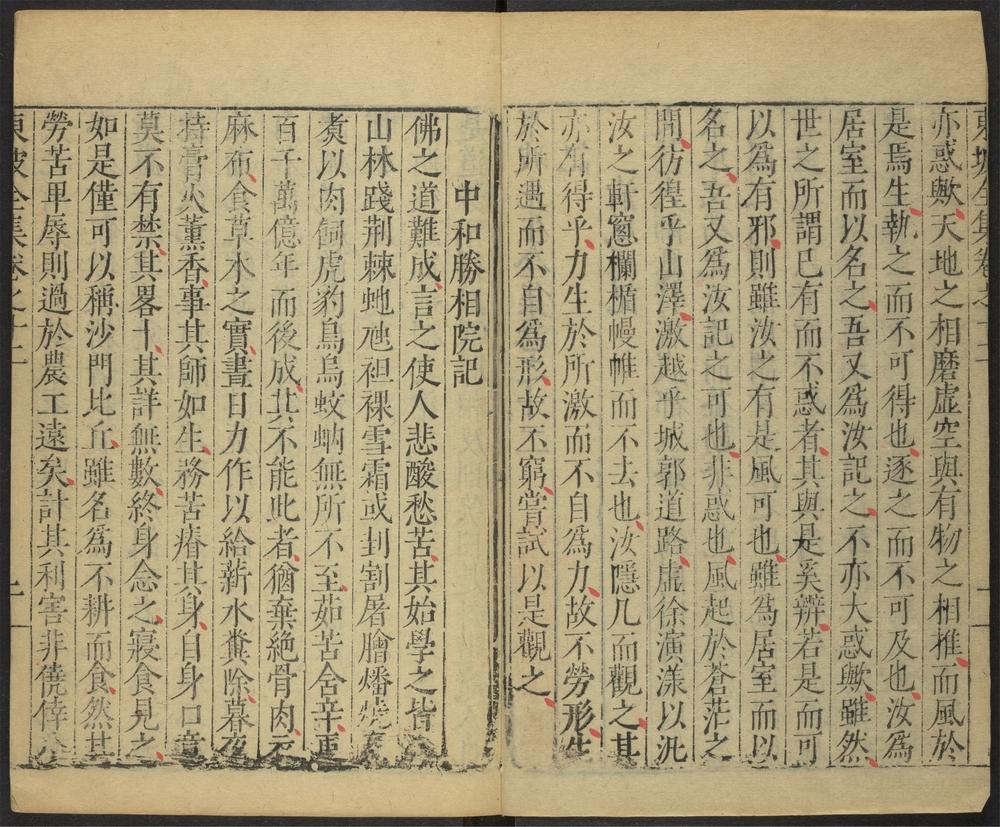 東坡全集卷之
亦惑歟天地之相磨虛空與有物之相推而風於
是焉生執之而不可得也逐之而不可及也汝為
居室而以名之吾又為汝記之不亦大惑歟雖然
世之所謂已有而不惑者其與是奚辨若是而可
以為有邪則雖汝之有是風可也雖為居室而以
名之吾又為汝記之可也非惑也風起於蒼茫之
間彷徨乎山澤激越乎城郭道路虛徐演漾以汎
汝之軒窻欄楯幔帷而不去也汝隱几而觀之其
亦有得乎力生於所激而不自為力故不勞形生
於所遇而不自為形故不窮嘗試以是觀之
中和勝相院記
佛之道難成言之使人悲酸愁苦其始學之皆
山林踐荆棘虵虺袒裸雪霜或刲割屠膾燔燒
煑以肉飼虎豹鳥烏蚊蚋無所不至茹苦含辛更
百千萬億年而後成其不能此者猶棄絕骨肉衣
麻布食草木之實晝日力作以給薪水糞除暮夜
持膏火薰香事其師如生務苦瘠其身自身口意
莫不有禁其畧十其詳無數終身念之寢食見之
如是僅可以稱沙門比丘雖名為不耕而食然其
勞苦卑辱則過於農工遠矣計其利害非僥倖
東坡全集卷之十二